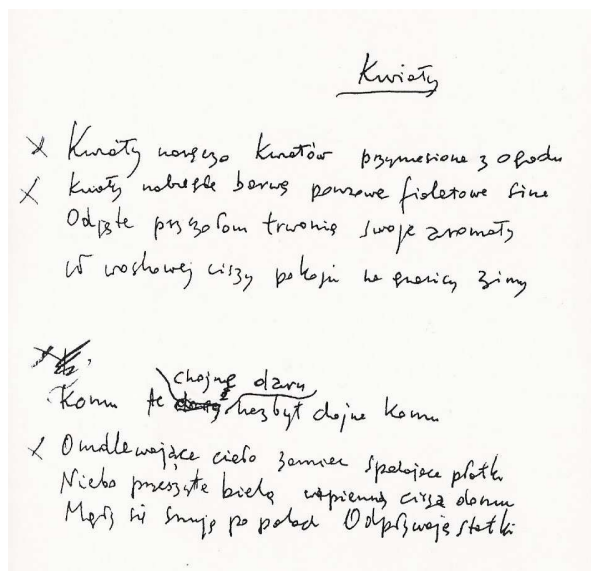 Kwiaty
Kwiaty naręcza kwiatów przyniesione z ogrodu
kwiaty nabrzękłe barwą ponsowe fioletowe sine
Odjęte pszczołom trwonią swoje aromaty
W woskowej ciszy pokoju na granicy zimy
chojne dary
Komu te nazbyt chojne komu
Omdlewające ciało zamieć spadające płatki
Niebo przeszyte bielą wapienną cisza domu
Mgły się snują po polach Odpływają statki